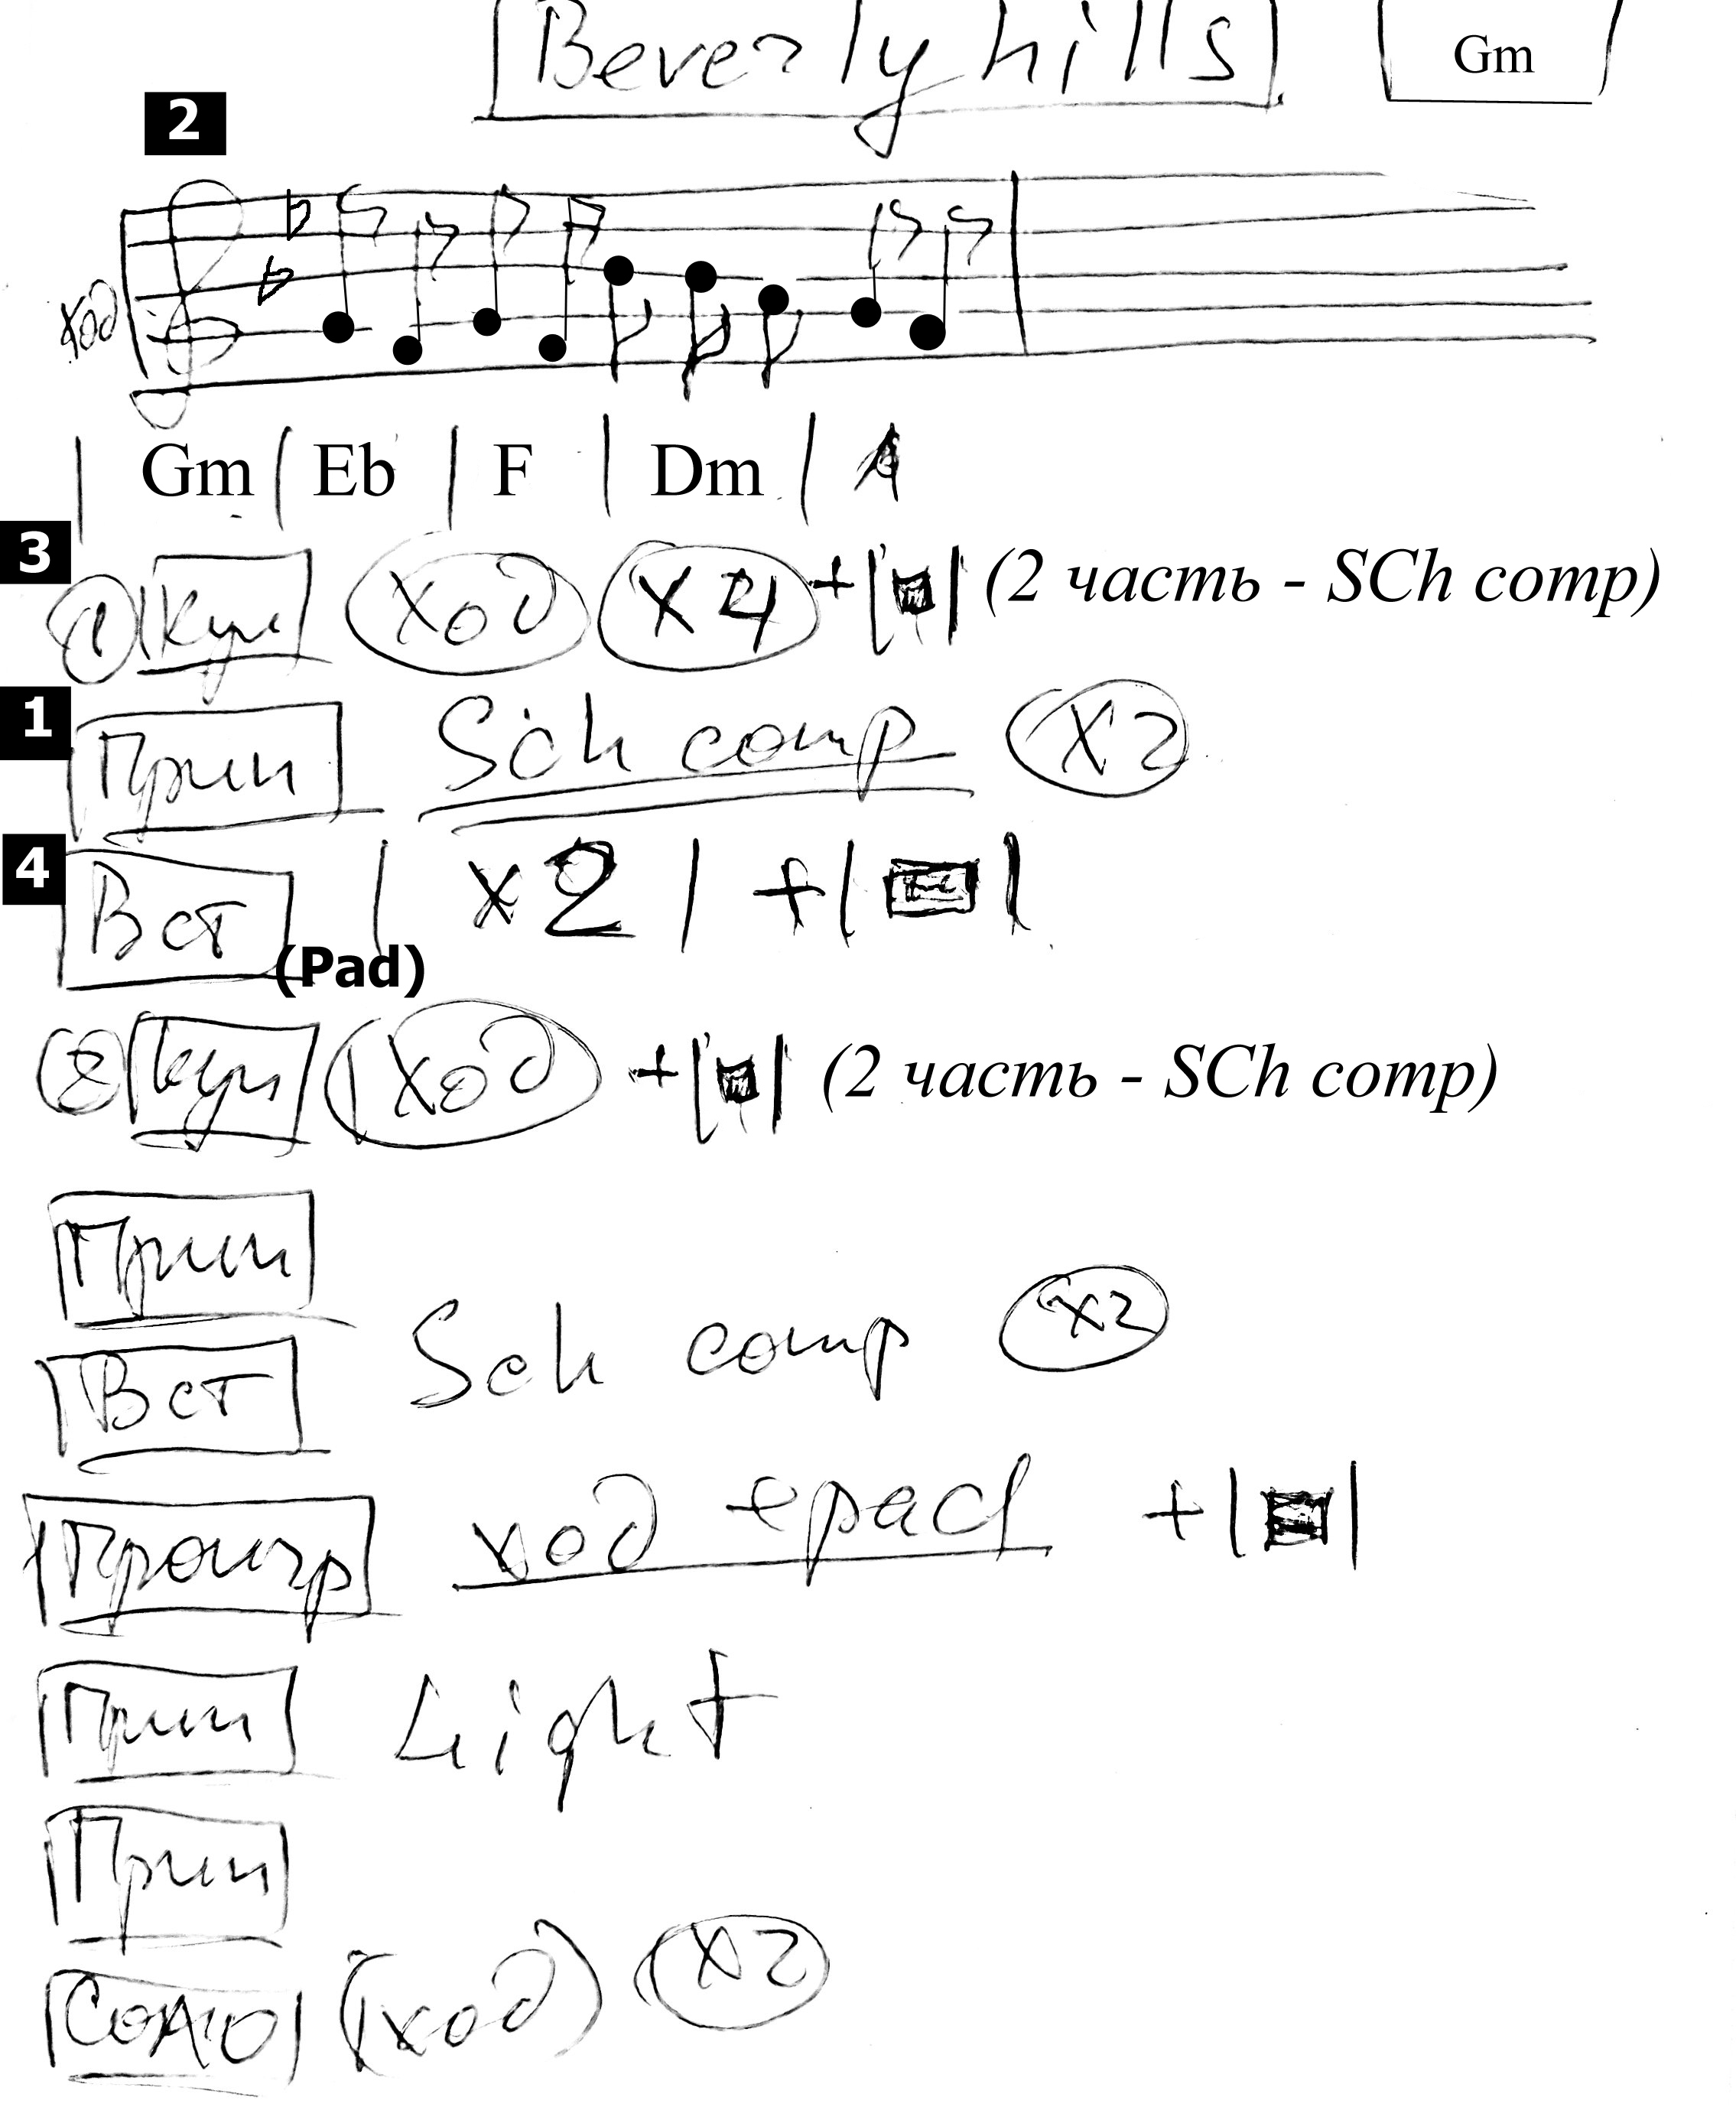 Beverly hills Gm
2
ход
Gm | Eb | F | Dm |
3
1 Куп ход x4 + (2 часть - SCh comp)
1
Прип Sch comp x2
4
Вст | x2 | + | |
(Pad)
2 Куп ход + (2 часть - SCh comp)
Прип
Sch comp x2
Вст
Проигр ход + pad + | |
Прип Light
Прип
Соло (ход) x2